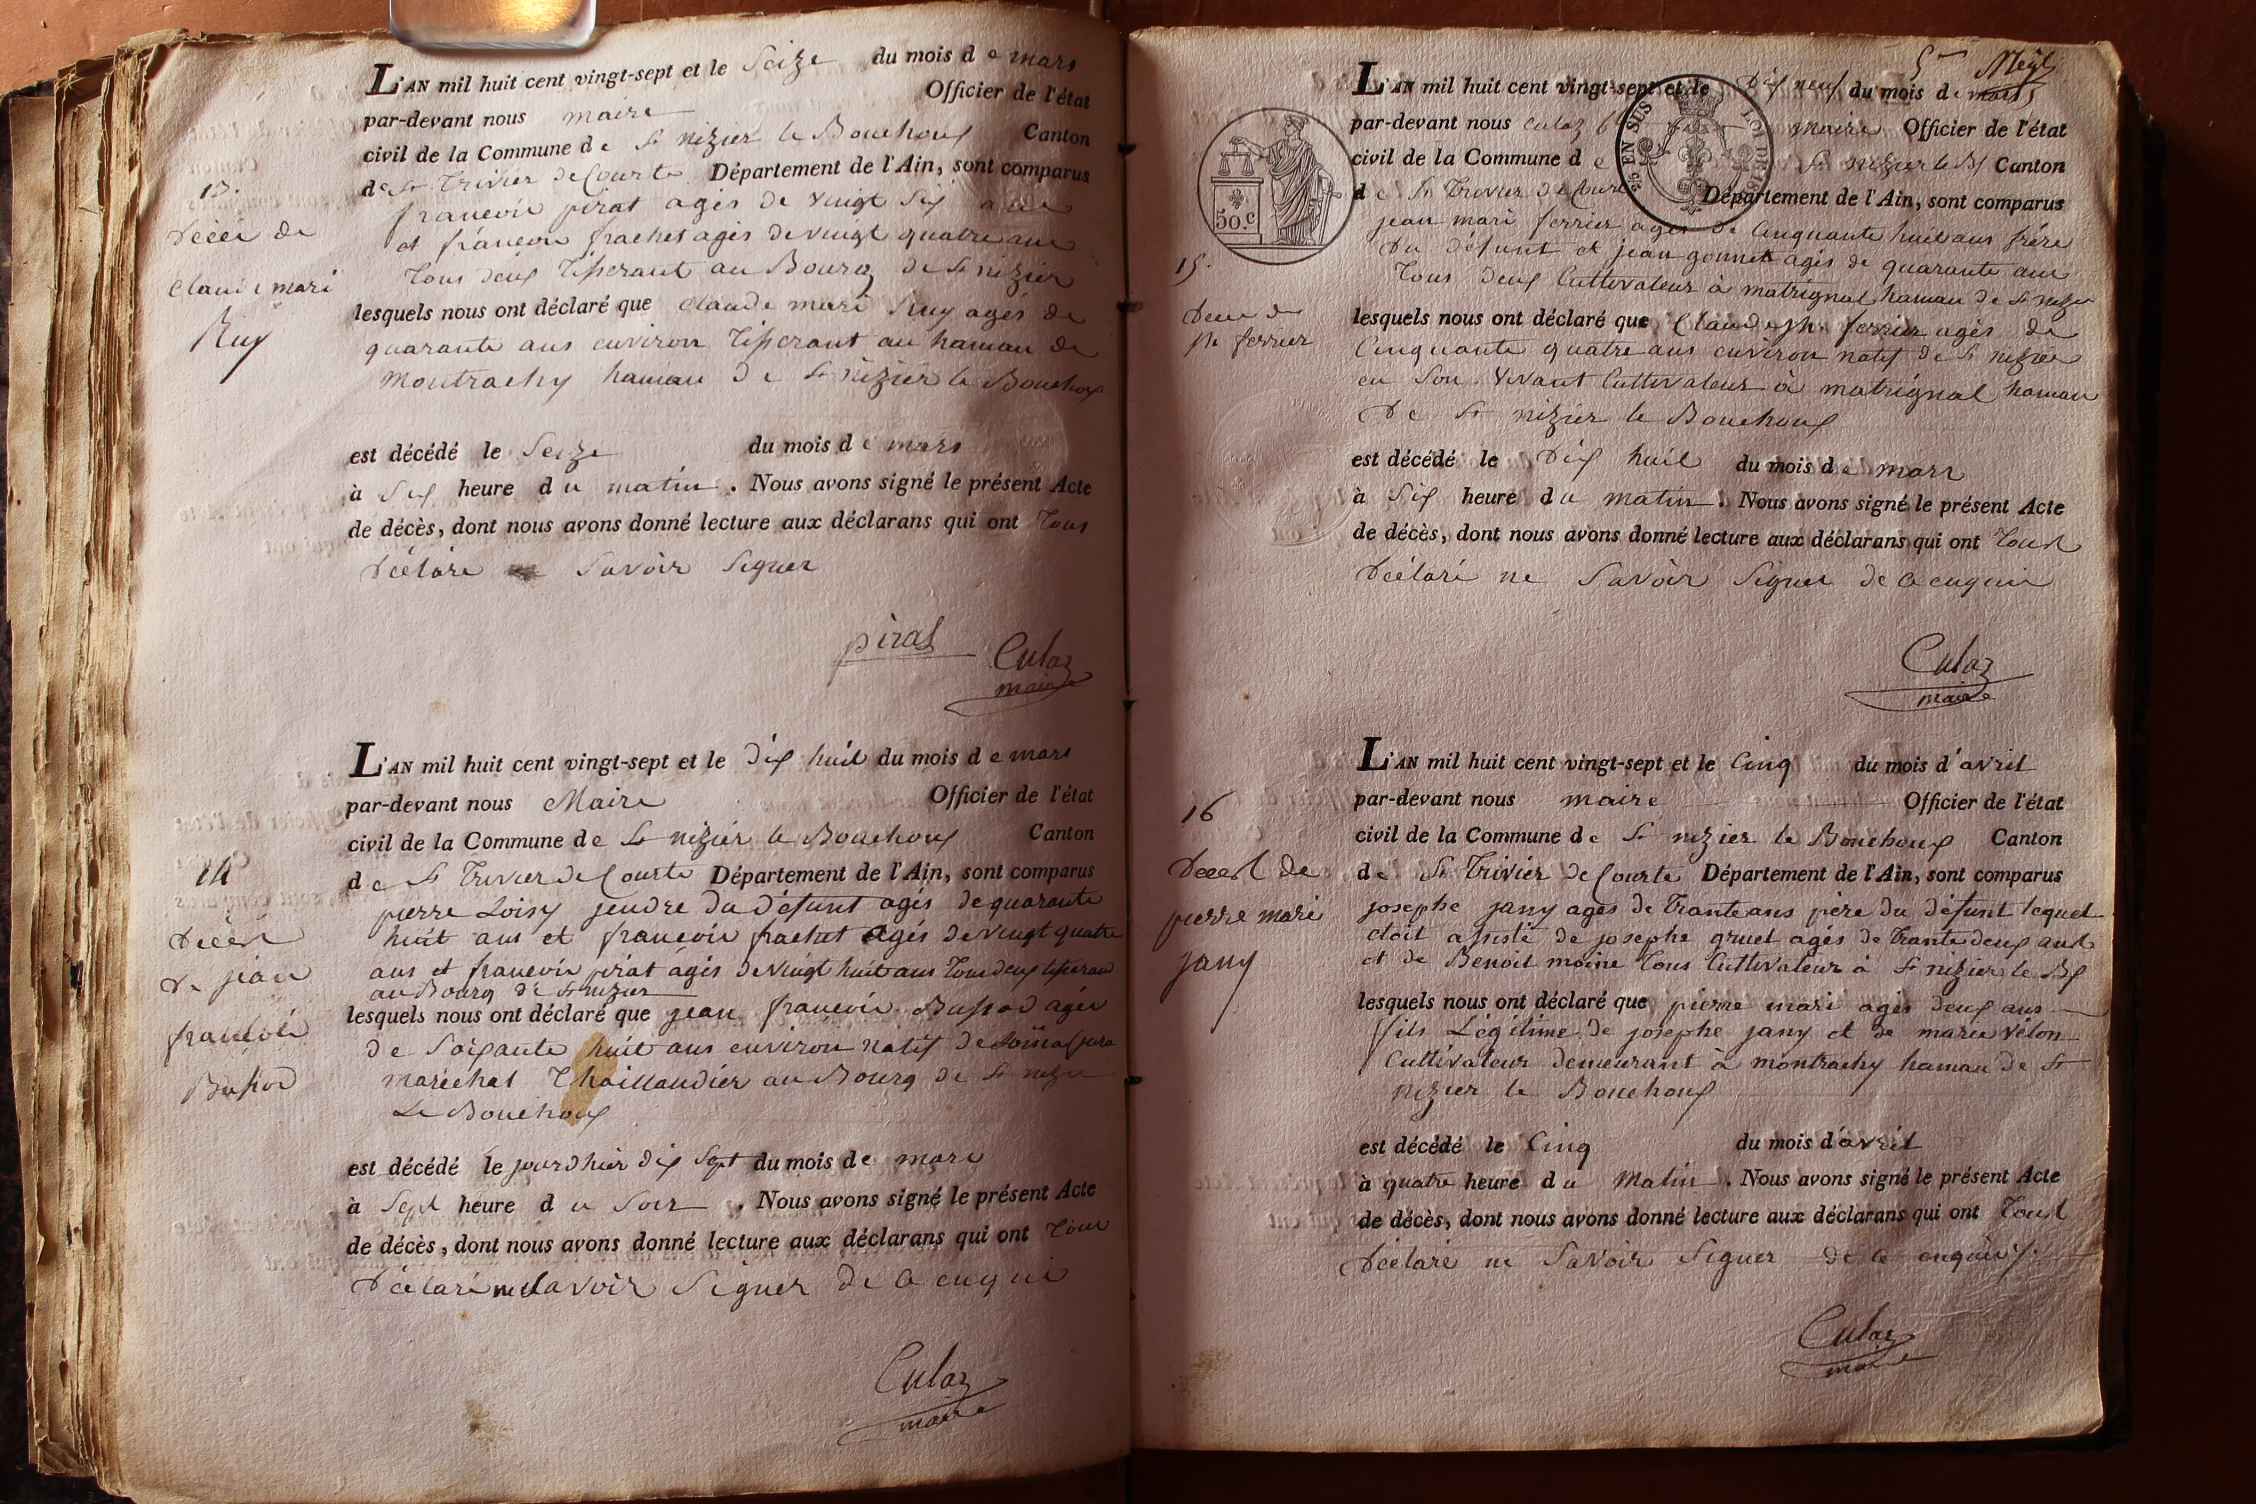 L'AN mil huit cent vingt-sept et le Seize du mois de mars
par-devant nous maire Officier de l'état
civil de la Commune de St nizier le Bouchoux Canton
de St Trivier de Courte Département de l'Ain, sont comparus
13.
francois pirat agés de vingt six ans
Décé de
et francois frachet agés de vingt quatre ans
Tous deux Tisserant au Bourg de St nizier
Claude mari
Ruy
lesquels nous ont déclaré que Claude mari Ruy agés de
quarante ans environ Tisserant au hamau de
montrachy hamau de St nizier le Bouchoux
est décédé le Seize du mois de mars
à Six heure du matin. Nous avons signé le présent Acte
de décès, dont nous avons donné lecture aux déclarans qui ont Tous
Déclaré Savoir Signer
pirat
Culaz
maire
L'AN mil huit cent vingt-sept et le dix huit du mois de mars
par-devant nous Maire Officier de l'état
civil de la Commune de St nizier le Bouchoux Canton
14
de St Trivier de Courte Département de l'Ain, sont comparus
pierre Loisy jendre du défunt agés de quarante
Décest
huit ans et francois frachet agés de vingt quatre
de jean
ans et francois pirat agés de vingt huit ans Tous deux tisserant
au Bourg de St nizier
francois
lesquels nous ont déclaré que jean francois Bussod agés
de Soixante huit ans environ natif de jura
Bussod
maréchal Thaillandier au Bourg de St nizier
Le Bouchoux
est décédé le jourdhier dix Sept du mois de mars
à Sept heure du Soir. Nous avons signé le présent Acte
de décès, dont nous avons donné lecture aux déclarans qui ont Tous
Déclaré ne Savoir Signer de ce enquis
Culaz
maire
5me Négt
L'AN mil huit cent vingt-sept et le Dix neuf du mois de mars
par-devant nous Culaz maire Officier de l'état
civil de la Commune de St nizier le Bx Canton
de St Trivier de Courte Département de l'Ain, sont comparus
EN SUS
LOI DE
50.c
jean mari ferrier agés de Cinquante huit ans frére
du défunt et jean gonnet agés de quarante ans
15.
Tous deux Cultivateur à matrignal hamau de St nizier
Décé de
lesquels nous ont déclaré que Claude jh. ferrier agés de
jh ferrier
Cinquante quatre ans environ natif de St nizier
en Son vivant Cultivateur à matrignal hamau
De St nizier le Bouchoux
est décédé le Dix huit du mois de mars
à Six heure du matin. Nous avons signé le présent Acte
de décès, dont nous avons donné lecture aux déclarans qui ont Tout
Déclaré ne Savoir Signer de ce enquis
Culaz
maire
L'AN mil huit cent vingt-sept et le Cinq du mois d'avril
par-devant nous maire Officier de l'état
16
civil de la Commune de St nizier le Bouchoux Canton
Décest de
de St Trivier de Courte Département de l'Ain, sont comparus
pierre mari
josephe jany agés de Trante ans père du défunt lequel
etoit assisté de josephe gruel agés de Trante deux ans
jany
et de Benoit moine Tous Cultivateur à St nizier le Bx
lesquels nous ont déclaré que pierre mari agés deux ans
fils Légitime de josephe jany et de marie vélon
Cultivateur demeurant à montrachy hamau de St
nizier le Bouchoux
est décédé le Cinq du mois d'avril
à quatre heure du Matin. Nous avons signé le présent Acte
de décès, dont nous avons donné lecture aux déclarans qui ont Tout
Déclaré ne Savoir Signer de ce enquis
Culaz
maire